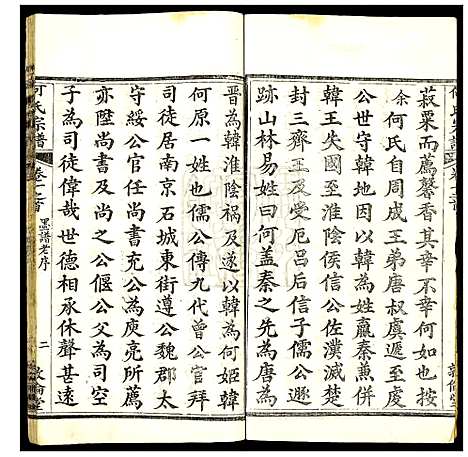 菽粟而薦馨香其幸不幸何如也
余何氏自周成王弟唐叔虞遞至食
公守韓地因以韓為姓嬴秦無併
韓王失國至淮陰侯信公佐漢滅楚
封三齊王及受戹呂后信子儒公遯
跡山林易姓曰何蓋秦之先為唐
晉為韓淮陰禍及遂以韓為何姬韓
何原一姓也儒公傳九代曾公官拜
司徒居南京石城東街遵公魏郡太
守綏公官尚書充公為庾亮所薦
亦陞尚書及尚之公偃公父為司空
子為司徒偉哉世德相承休聲甚遠
何氏宗譜
卷一之首
墨譜老序
二
敦倫堂